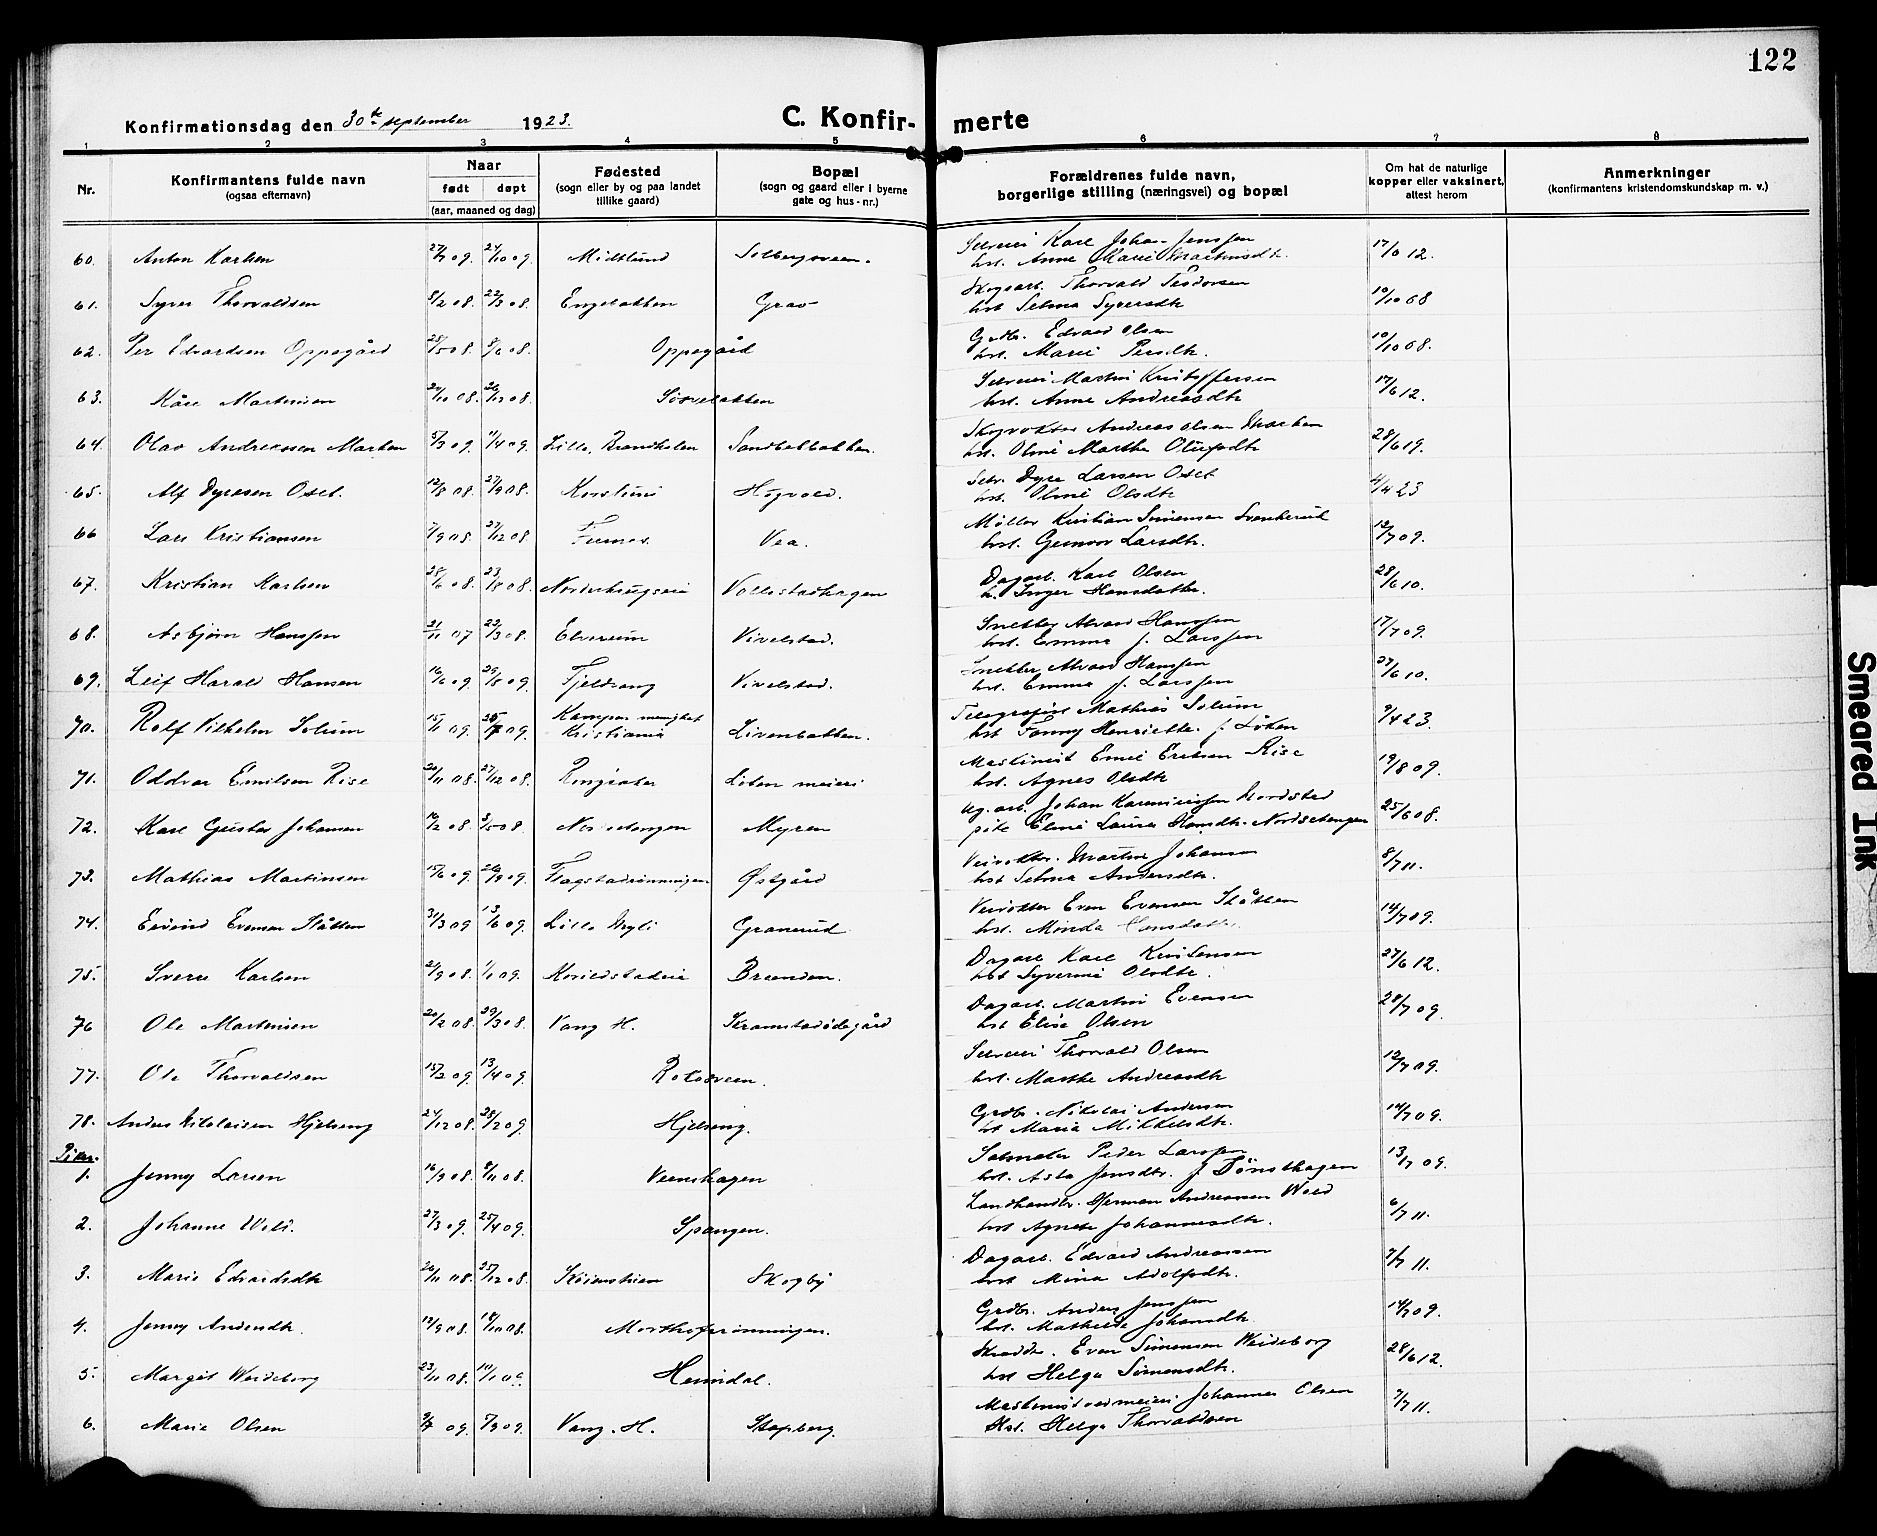 122
Konfirmationsdag den 30te september 1923.
C. Konfir- merte
1 2 3 4 5 6 7 8
Nr.
Konfirmantens fulde navn
(ogsaa efternavn)
Naar
født døpt
(aar, maaned og dag)
Fødested
(sogn eller by og paa landet
tillike gaard)
Bopæl
(sogn og gaard eller i byerne
gate og hus-nr.)
Forældrenes fulde navn,
borgerlige stilling (næringsvei) og bopæl
Om hat de naturlige
kopper eller vaksinert,
attest herom
Anmerkninger
(konfirmantens kristendomskundskap m. v.)
60. Anton Karlsen 24/10 09. Midtlund Solbergsveen. Karl Johan Jenssen 17/6 12.
hst. Anne Marie Martinsdtr.
61. Syver Thorvaldsen 8/2 08. 22/3 08. Engebakken Grav Skogsarb. Thorvald 10/10 08
hst Selma Syversdtr
62. Per Edvardsen Oppegård 8/6 08. Oppegård Grdbr. Edvard Olsen 10/10 08.
hst. Marie Persdtr.
63. Kåre Martinsen 26/12 08. Martin Kristoffersen 17/6 12.
hst. Anne Andreasdtr
64. Olav Andreassen Marken Lille Brandhelen Sandbakbakken. Skogvokter Andreas Olsen Marken 28/6 19.
hst. Oline Marthe Olufsdtr
65. Alf Dyresen Oset. 12/8 08. 27/9 08. Høgvold. Dyre Larsen Oset 4/4 23
hst. Oline Olsdtr
66 Lars Kristiansen 7/9 08. 27/12 08 Furnes. Vea. Møller Kristian Simensen 12/7 09.
hst. Gunvor Larsdtr.
67. Kristian Karlsen 28/6 08. 23/8 08. Vollestadhagen Dagarb. Karl Olsen 28/6 10.
h. Inger Hansdatter.
68. Asbjørn Hanssen 21/11 07 22/3 08. Elverum Vivelstad. Snekker Alvar Hanssen 17/7 09.
hst. Emma f. Larssen
69. Leif Harald Hansen 16/6 09. 29/8 09. Fjeldvang Vivelstad. Snekker Alvar Hanssen 27/6 10.
hst. Emma f. Larssen
70. Rolf Vilhelm Solum 15/1 09. Kampen menighet Livenbakken. Telegrafist Mathias Solum 9/4 23.
Kristiania hst Fanny Henriette f. Løken
71. Oddvar Emilsen Rise 20/11 08. 27/12 08. Ringsaker Løten meieri Maskinist Emil Eriksen Rise 19/8 09.
hst. Agnes Olsdtr
72. Karl Gustav Johansen 16/2 08. 3/5 08. Nordstangen Myren Ug. arb. Johan Nordstad 25/6 08.
pike Eline Laura Hansdtr. Nordstangen
73. Mathias Martinsen 15/6 09. 26/9 09. Flagstadrønningen Østgård Veivokter. Martin Johansen 8/7 11.
hst Selma Andersdtr.
74. Eivind Evensen Slåtten 31/3 09 13/6 09. Lille Myli Granerud Veivokter Even Evensen Slåtten 14/7 09.
hst. Minda Hansdatter.
75. Sverre Karlsen 24/9 08. 1/1 09. Brænden. Dagarb Karl Kristensen 27/6 12.
hst Syverine Olsdtr.
76 Ole Martinsen 20/2 08. 29/3 08. Vang H. Skramstadødegård Dagarb. Martin Evensen 28/7 09.
hst Elise Olsen
77. Ole Thorvaldsen 15/2 09. 13/4 09. Rokosveen. Thorvald Olsen 12/7 09.
hst. Marthe Andreasdtr
78. Anders Nikolaisen Hjelseng 24/12 08. 28/2 09. Hjelseng. Grdbr. Nikolai Andersen 14/7 09.
hst Maria Mikkelsdtr.
Piker.
1. Jenny Larsen 16/9 08. 8/11 08. Veenshagen Salmaker Peder Larssen 13/7 09.
hst. Asta Jensdtr. f. Tønsthagen
2. Johanne Wold. 27/3 09. 25/4 09. Spangen. Landhandler. Herman Andreassen Wold 6/7 11.
hst Agnete Johannesdtr.
3. Marie Edvardsdtr 26/11 08. 25/12 08. Skogby Dagarb. Edvard Andreassen 7/7 11.
hst Mina Adolfsdtr.
4. Jenny Andersdtr. 12/9 08. 18/10 08. Morthoffrønningen. Grdbr. Anders Jenssen 14/7 09.
hst. Mathilde Johansdtr.
5. Margit Weideborg 23/11 08. 10/1 09. Heimdal. Skrædder. Even Simensen Weideborg 28/6 12.
hst Helga Simensdtr.
6. Marie Olsen 7/3 09. Vang. H. Stopberg. Maskinist ved meieri Johannes Olsen 7/7 11.
Hst. Helga Thorvaldsen
Smeared Ink